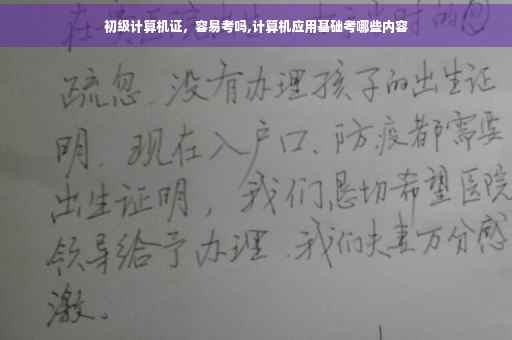 初级计算机证，容易考吗,计算机应用基础考哪些内容
疏忽.没有办理孩子的出生证
明.现在入户口、防疫都需要
出生证明，我们恳切希望医院
领导给予办理.我们夫妻万分感
激。